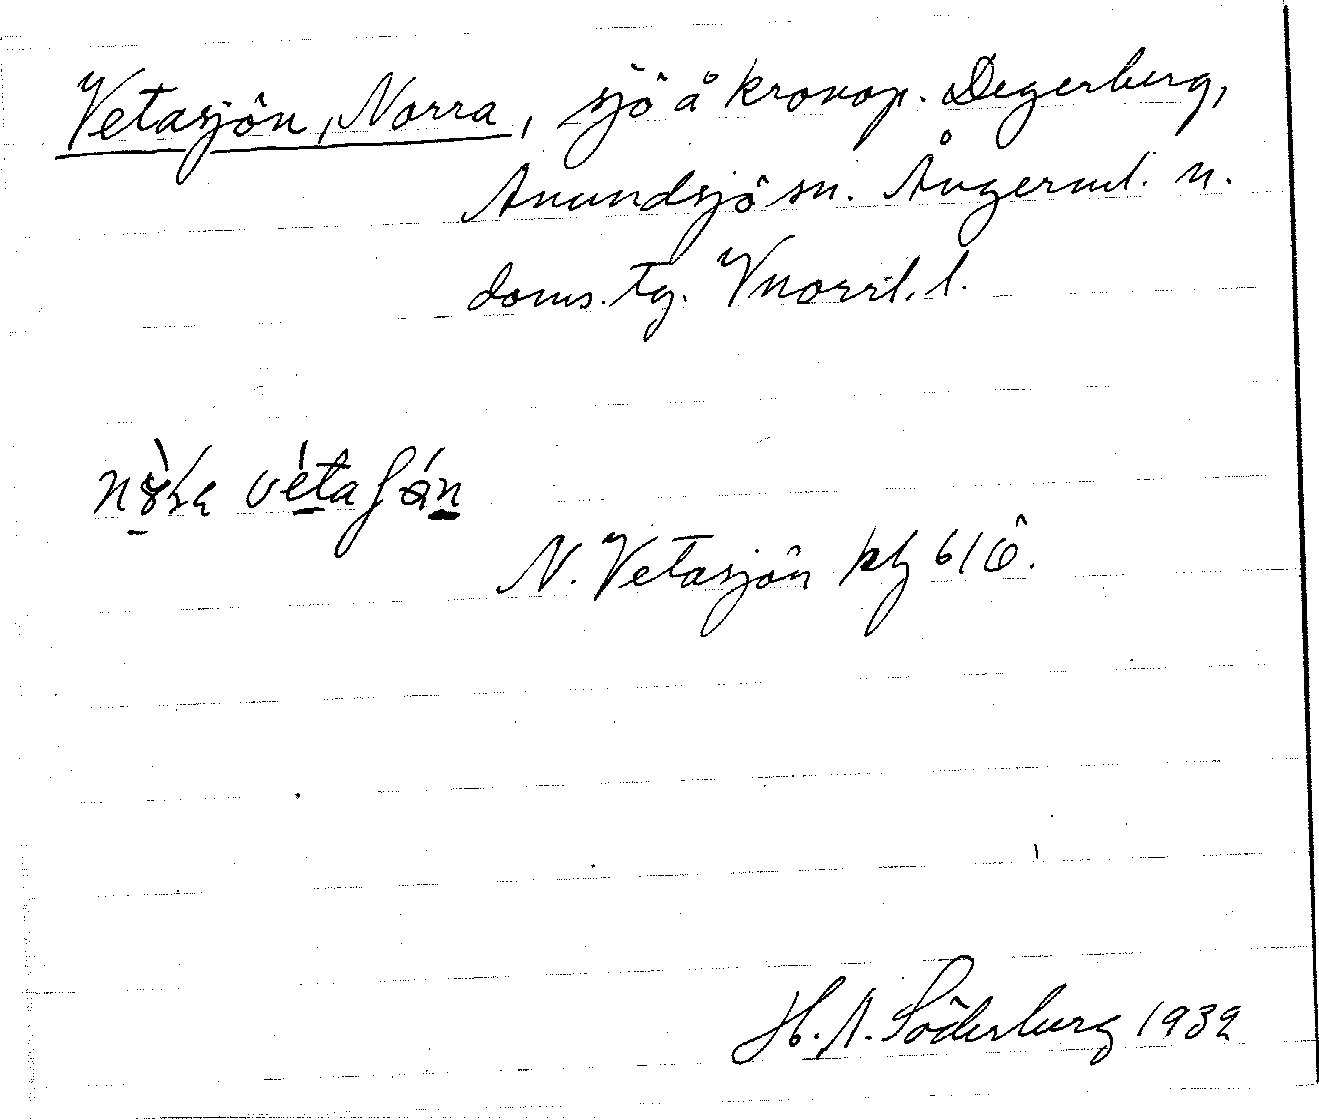 Vetasjön, Norra, sjö å kronop. Degerberg,
Anundsjö sn. Ångerml. n.
doms. tg. Vnorrl. l.
vétaʃön
N. Vetasjön kbl 61 Ö.
H. A. Söderberg 1932